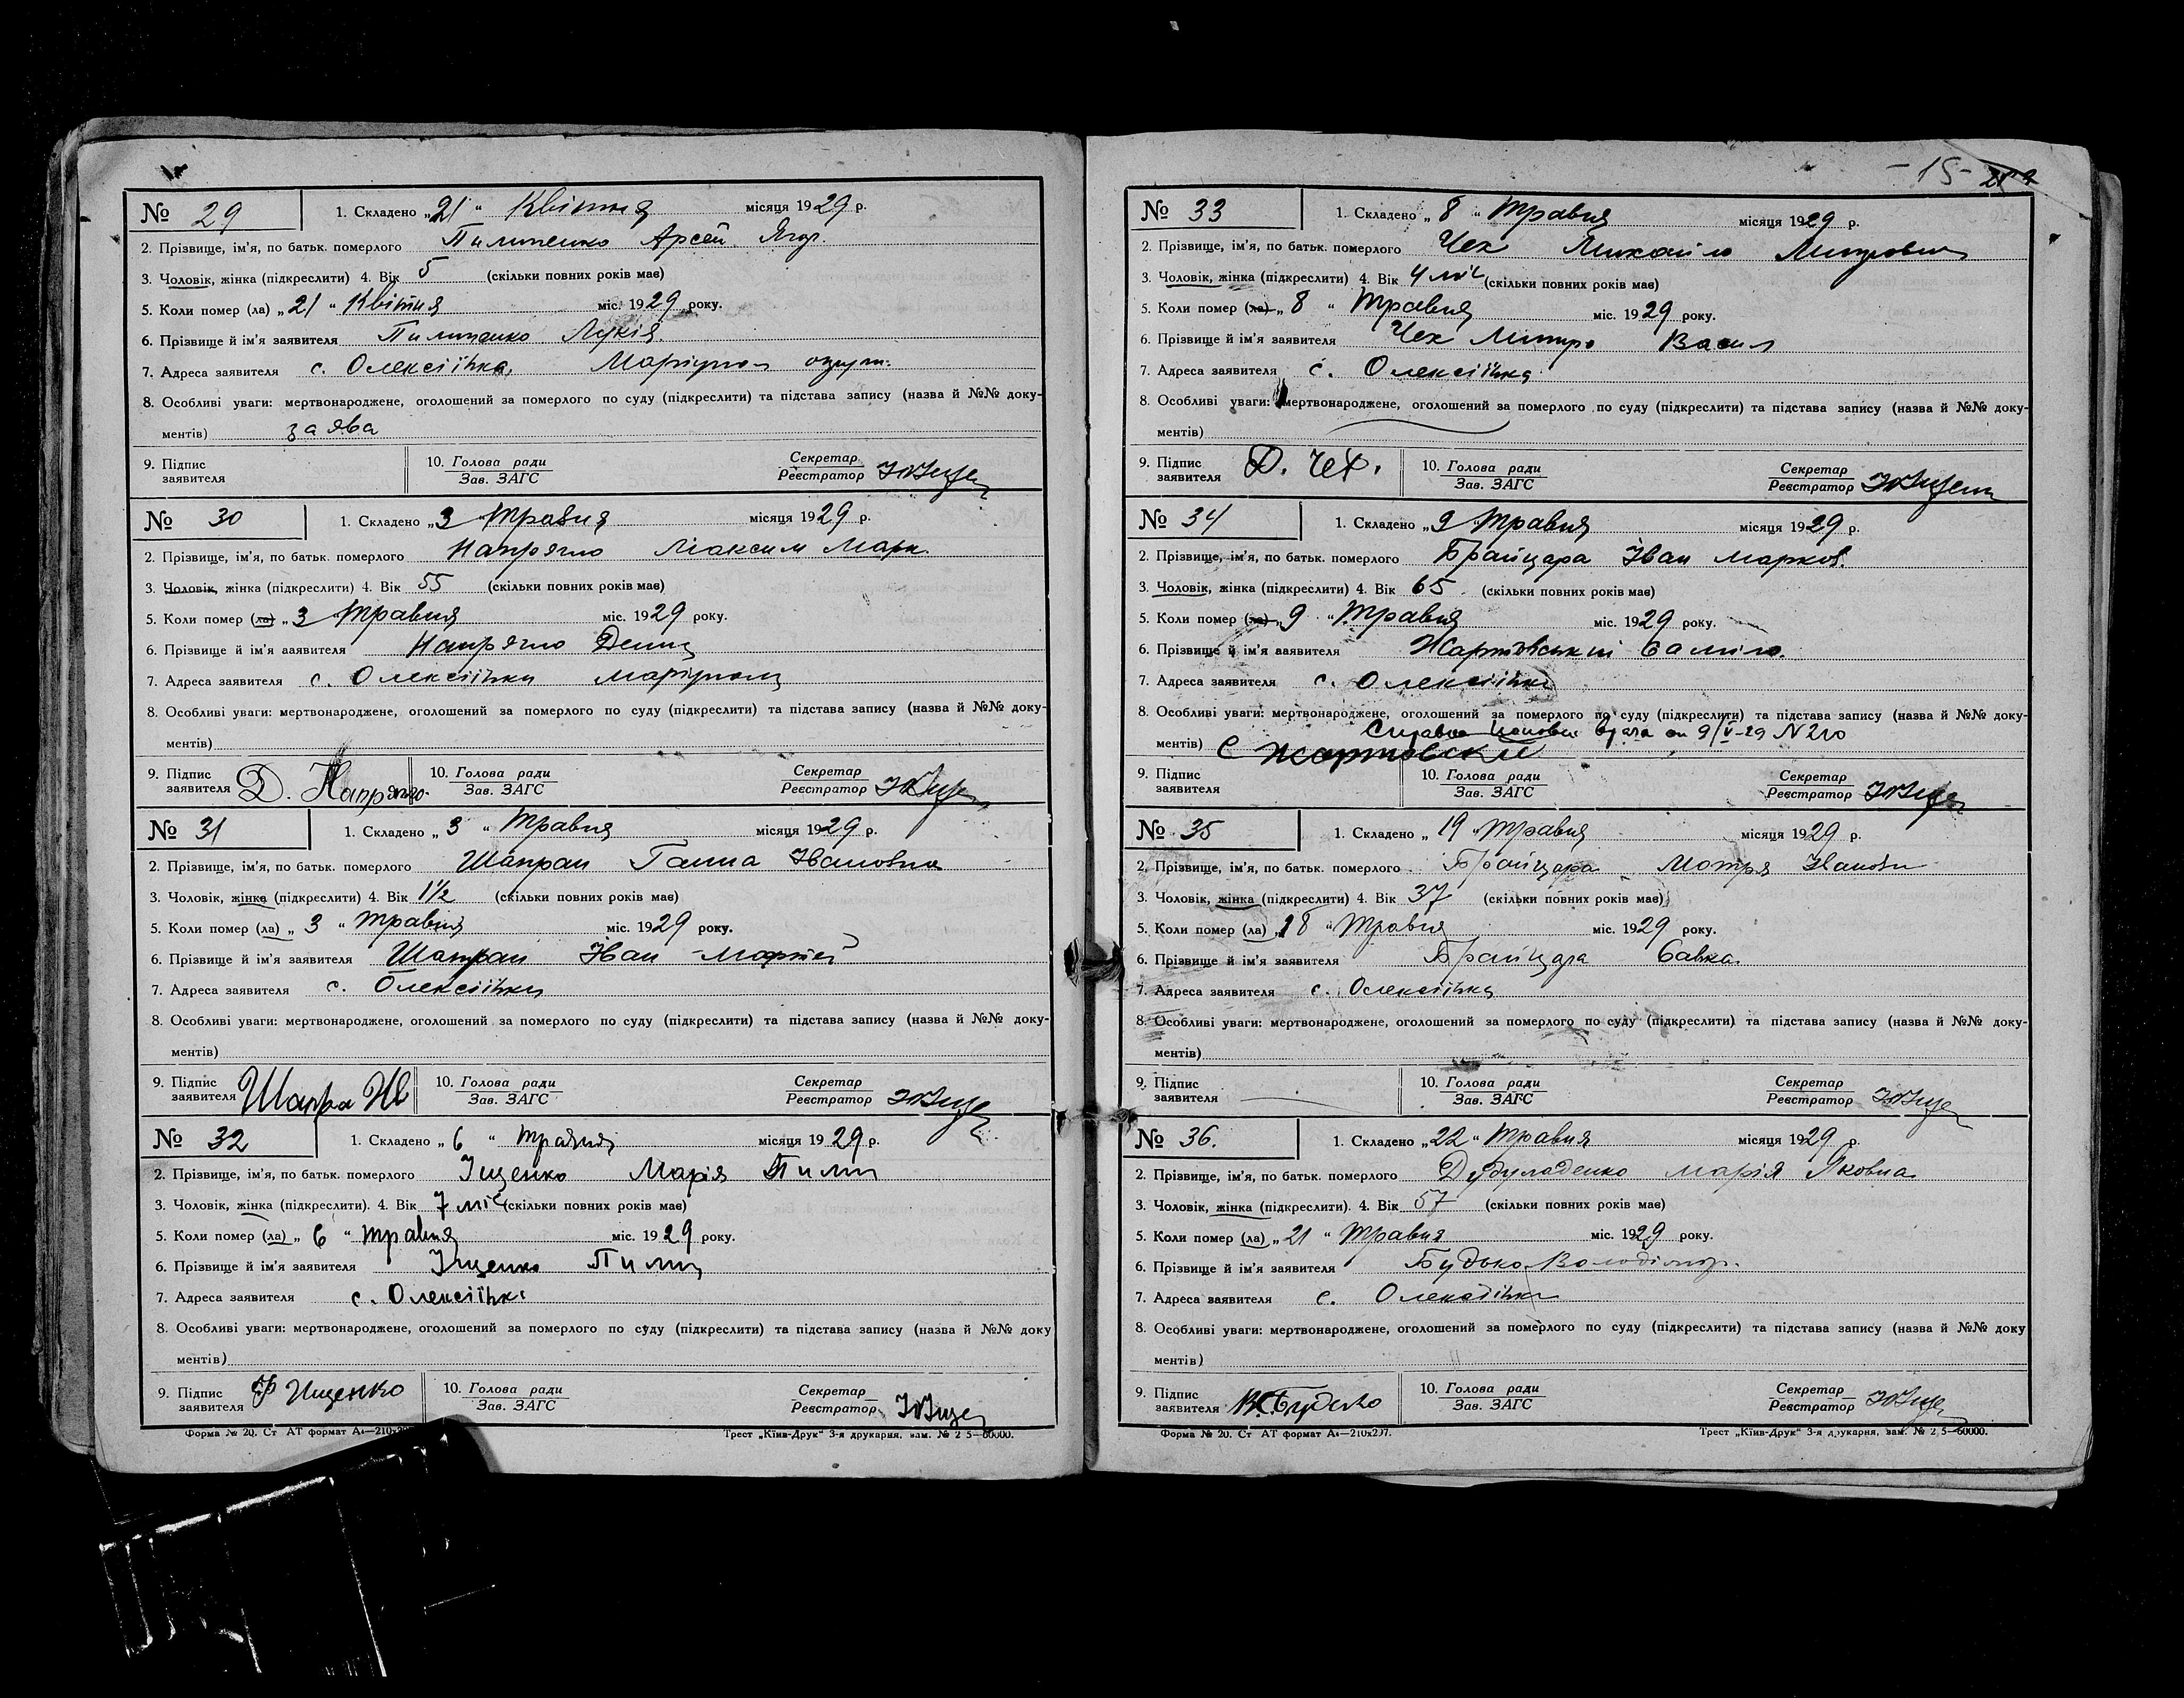 № 29 1. Складено „21“ Квітня місяця 1929 р.
2. Прізвище, ім'я, по батьк. померлого Пилипенко Арсей Ягор.
3. Чоловік, жінка (підкреслити) 4. Вік 5 (скільки повних років має)
5. Коли помер (ла) „21“ Квітня міс. 1929 року.
6. Прізвище й ім'я заявителя Пилипенко Лукія.
7. Адреса заявителя с. Олексіївка, Маріупол округи.
8. Особливі уваги: мертвонароджене, оголошений за померлого по суду (підкреслити) та підстава запису (назва й №№ доку-
ментів) заява
9. Підпис заявителя 10. Голова ради Зав. ЗАГС Секретар Реєстратор
№ 30 1. Складено „3 Травня місяця 1929 р.
2. Прізвище, ім'я, по батьк. померлого Напрягло Максим Марк.
3. Чоловік, жінка (підкреслити) 4. Вік 55 (скільки повних років має)
5. Коли помер (ла) „3“ Травня міс. 1929 року.
6. Прізвище й ім'я заявителя Напрягло Денис
7. Адреса заявителя с. Олексіївки Маріупол
8. Особливі уваги: мертвонароджене, оголошений за померлого по суду (підкреслити) та підстава запису (назва й №№ доку-
ментів)
9. Підпис заявителя Д. Напрягло. 10. Голова ради Зав. ЗАГС Секретар Реєстратор
№ 31 1. Складено „3“ Травня місяця 1929 р.
2. Прізвище, ім'я, по батьк. померлого Шапран Ганна Івановна
3. Чоловік, жінка (підкреслити) 4. Вік 1½ (скільки повних років має)
5. Коли помер (ла) „3“ Травня міс. 1929 року.
6. Прізвище й ім'я заявителя Шапран Іван
7. Адреса заявителя с. Олексіївки
8. Особливі уваги: мертвонароджене, оголошений за померлого по суду (підкреслити) та підстава запису (назва й №№ доку-
ментів)
9. Підпис заявителя Шапра Ив 10. Голова ради Зав. ЗАГС Секретар Реєстратор
№ 32 1. Складено „6“ Травня місяця 1929 р.
2. Прізвище, ім'я, по батьк. померлого Іщенко Марія Пилип
3. Чоловік, жінка (підкреслити). 4. Вік 7 міс (скільки повних років має)
5. Коли помер (ла) „6“ травня міс. 1929 року.
6. Прізвище й ім'я заявителя Іщенко Пилип
7. Адреса заявителя с. Олексіївка
8. Особливі уваги: мертвонароджене, оголошений за померлого по суду (підкреслити) та підстава запису (назва й №№ доку
ментів)
9. Підпис заявителя Ф Ищенко 10. Голова ради Зав. ЗАГС Секретар Реєстратор
Форма № 20. Ст АТ формат А4—210x29 Трест „Київ-Друк“ 3-я друкарня, зам. № 2 5—60000.
– 15 –
№ 33 1. Складено „8“ Травня місяця 1929 р.
2. Прізвище, ім'я, по батьк. померлого Чех Михайло Митрович
3. Чоловік, жінка (підкреслити) 4. Вік 4 міс (скільки повних років має)
5. Коли помер (ла) „8“ Травня міс. 1929 року.
6. Прізвище й ім'я заявителя Чех Митро Васил
7. Адреса заявителя с. Олексіївка
8. Особливі уваги: мертвонароджене, оголошений за померлого по суду (підкреслити) та підстава запису (назва й №№ доку-
ментів)
9. Підпис заявителя Д. Чех. 10. Голова ради Зав. ЗАГС Секретар Реєстратор
№ 34 1. Складено „9 Травня місяця 1929 р.
2. Прізвище, ім'я, по батьк. померлого Брайцара Іван Марков.
3. Чоловік, жінка (підкреслити) 4. Вік 65 (скільки повних років має)
5. Коли помер (ла) „9“ Травня міс. 1929 року.
6. Прізвище й ім'я заявителя Жартовський
7. Адреса заявителя с. Олексіївка
8. Особливі уваги: мертвонароджене, оголошений за померлого по суду (підкреслити) та підстава запису (назва й №№ доку-
Справка врача от 9/V-29 N 210
ментів) С Жартовский
9. Підпис заявителя 10. Голова ради Зав. ЗАГС Секретар Реєстратор
№ 35 1. Складено „19“ Травня місяця 1929 р.
2. Прізвище, ім'я, по батьк. померлого Брайцара Мотря Іванівн
3. Чоловік, жінка (підкреслити) 4. Вік 37 (скільки повних років має)
5. Коли помер (ла) „18“ Травня міс. 1929 року.
6. Прізвище й ім'я заявителя Брайцара Савка
7. Адреса заявителя с. Олексіївка
8. Особливі уваги: мертвонароджене, оголошений за померлого по суду (підкреслити) та підстава запису (назва й №№ доку-
ментів)
9. Підпис заявителя 10. Голова ради Зав. ЗАГС Секретар Реєстратор
№ 36. 1. Складено „22“ Травня місяця 1929 р.
2. Прізвище, ім'я, по батьк. померлого Марія Яковна
3. Чоловік, жінка (підкреслити). 4. Вік 57 (скільки повних років має)
5. Коли помер (ла) „21“ Травня міс. 1929 року.
6. Прізвище й ім'я заявителя Будько Володімір.
7. Адреса заявителя с. Олексіївка
8. Особливі уваги: мертвонароджене, оголошений за померлого по суду (підкреслити) та підстава запису (назва й №№ доку
ментів)
9. Підпис заявителя В. Будько 10. Голова ради Зав. ЗАГС Секретар Реєстратор
Форма № 20. Ст АТ формат А4—210x297. Трест „Київ-Друк“ 3-я друкарня, зам. № 2 5—60000.